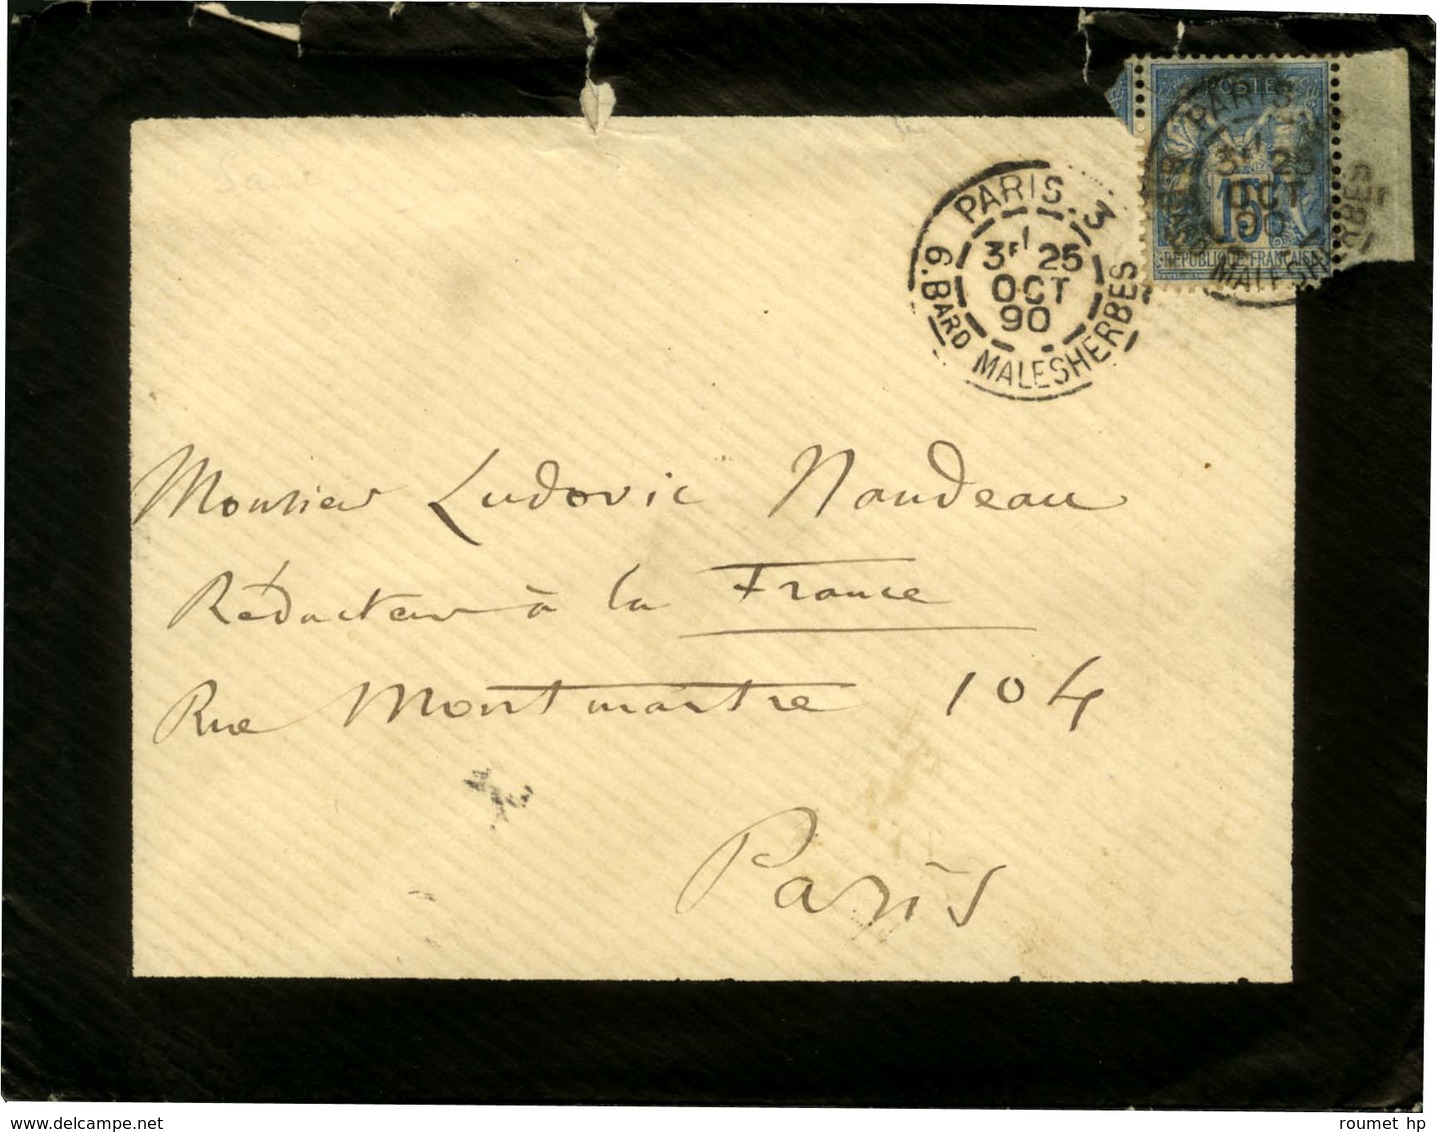 PARIS. 3
3E 25
OCT
90
6. BARD MALESHERBES
POSTE
15
REPUBLIQUE FRANCAISE
PARIS
3E 25
OCT
90
MALESHERBES
Monsieur Ludovic Naudeau
Rédacteur à la France
Rue Montmartre 104
Paris
www.delcampe.net
roumet hp